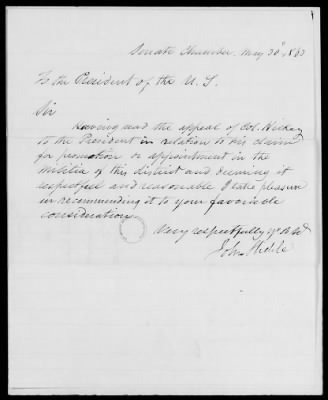 Senate Chamber. May 30th, 1863
To the President of the U. S.
Sir
Having read the appeal of Col. Hickey
to the President in relation to his claim
for promotion or appointment in the
militia of this district and deeming it
respectful and reasonable I take pleasure
in recommending it to your favorable
consideration
Very respectfully yr. ob. st.
John